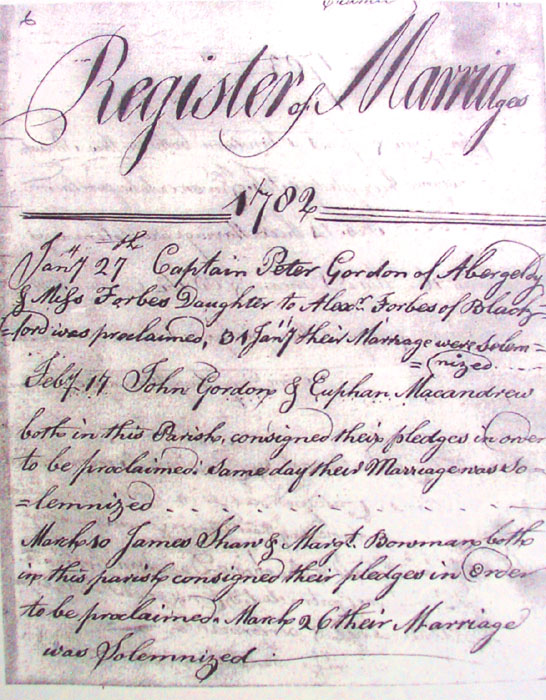 6
Register of Marriages
1782
Jan^ry 27^th Captain Peter Gordon of Abergeldy
& Miss Forbes Daughter to Alex^r. Forbes of Black-
=ford was proclaimed, 31 Jan^ry their Marriage were Solem=
=nized
Feb^ry 17 John Gordon & Euphan Macandrew
both in this Parish, consigned their pledges in order
to be proclaimed. same day their Marriage was So=
=lemnized
March 10 James Shaw & Marg^t. Bowman both
in this parish consigned their pledges in Order
to be proclaimed. March 26 their Marriage
was Solemnized